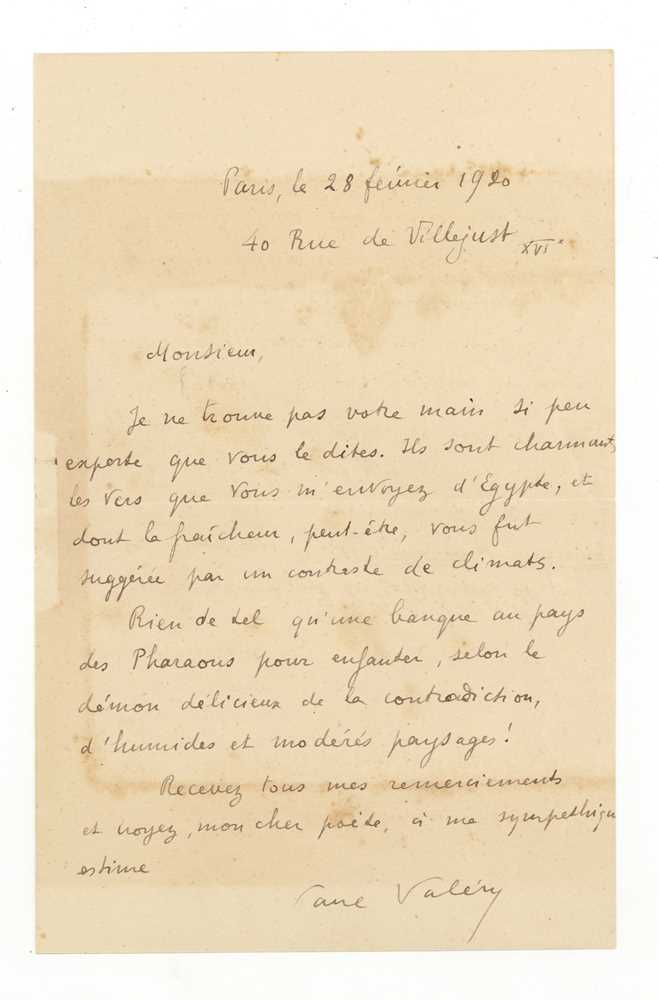 Paris, le 28 février 1920
40 Rue de Villejust XVIe
Monsieur,
Je ne trouve pas votre main si peu
experte que vous le dites. Ils sont charmants,
les vers que vous m'envoyez d'Egypte, et
dont la fraîcheur, peut-être, vous fut
suggérée par un contraste de climats.
Rien de tel qu'une banque au pays
des Pharaons pour enfanter, selon le
démon délicieux de la contradiction,
d'humides et modérés paysages!
Recevez tous mes remerciements
et croyez, mon cher poète, à ma sympathique
estime
Paul Valéry